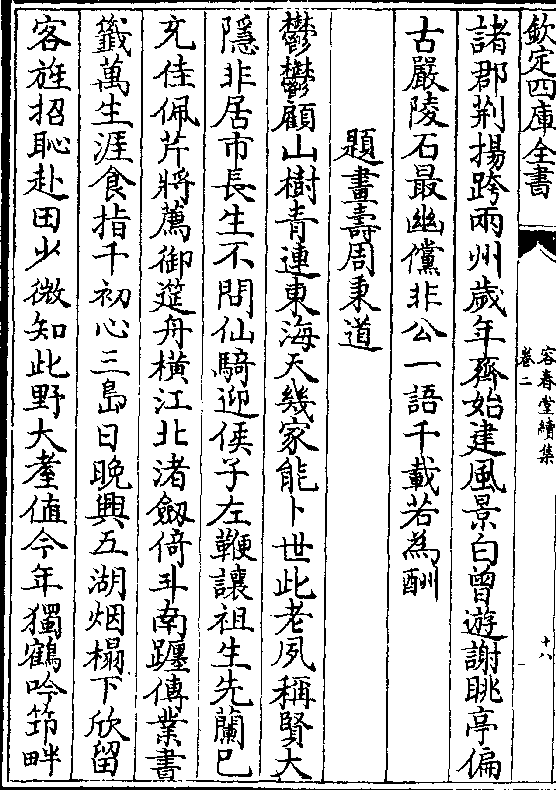 欽定四庫全書
容春堂續集
卷二
十八
諸郡荆揚跨兩州歲年齊始建風景白曾遊謝眺亭偏
古嚴陵石最幽儻非公一語千載若為酬
題畫壽周東道
鬱鬱顧山樹青連東海天幾家能卜世此老夙稱賢大
隱非居市長生不問仙騎迎侯子左鞭讓祖生先蘭已
充佳佩芹將薦御筵舟橫江北渚劔倚斗南躔傳業書
籖萬生涯食指千初心三島日晚興五湖烟榻下欣留
客旌招恥赴田少微知此野大耋值今年獨鶴吟笻畔